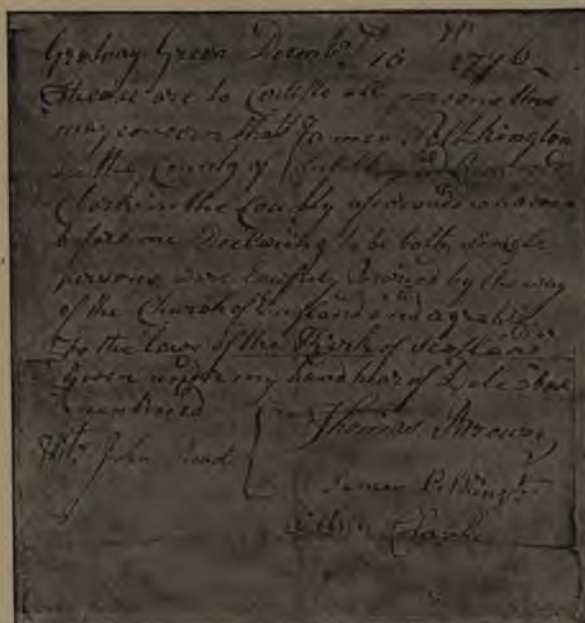 Gretnay Green Decmbr. 16 1746
These are to Certifie all persons that
may concern that James Pilkington
in the County of
Clark in the County aforesaid
before me Declairing to be both single
persons were lawfuly Joined by the way
of the Church of England and agreable
to the laws of the Kirk of Scotland
Given under my hand hear of Date above
mentined
Thomas Brown
Witt. John
James Pilkingt
Clark